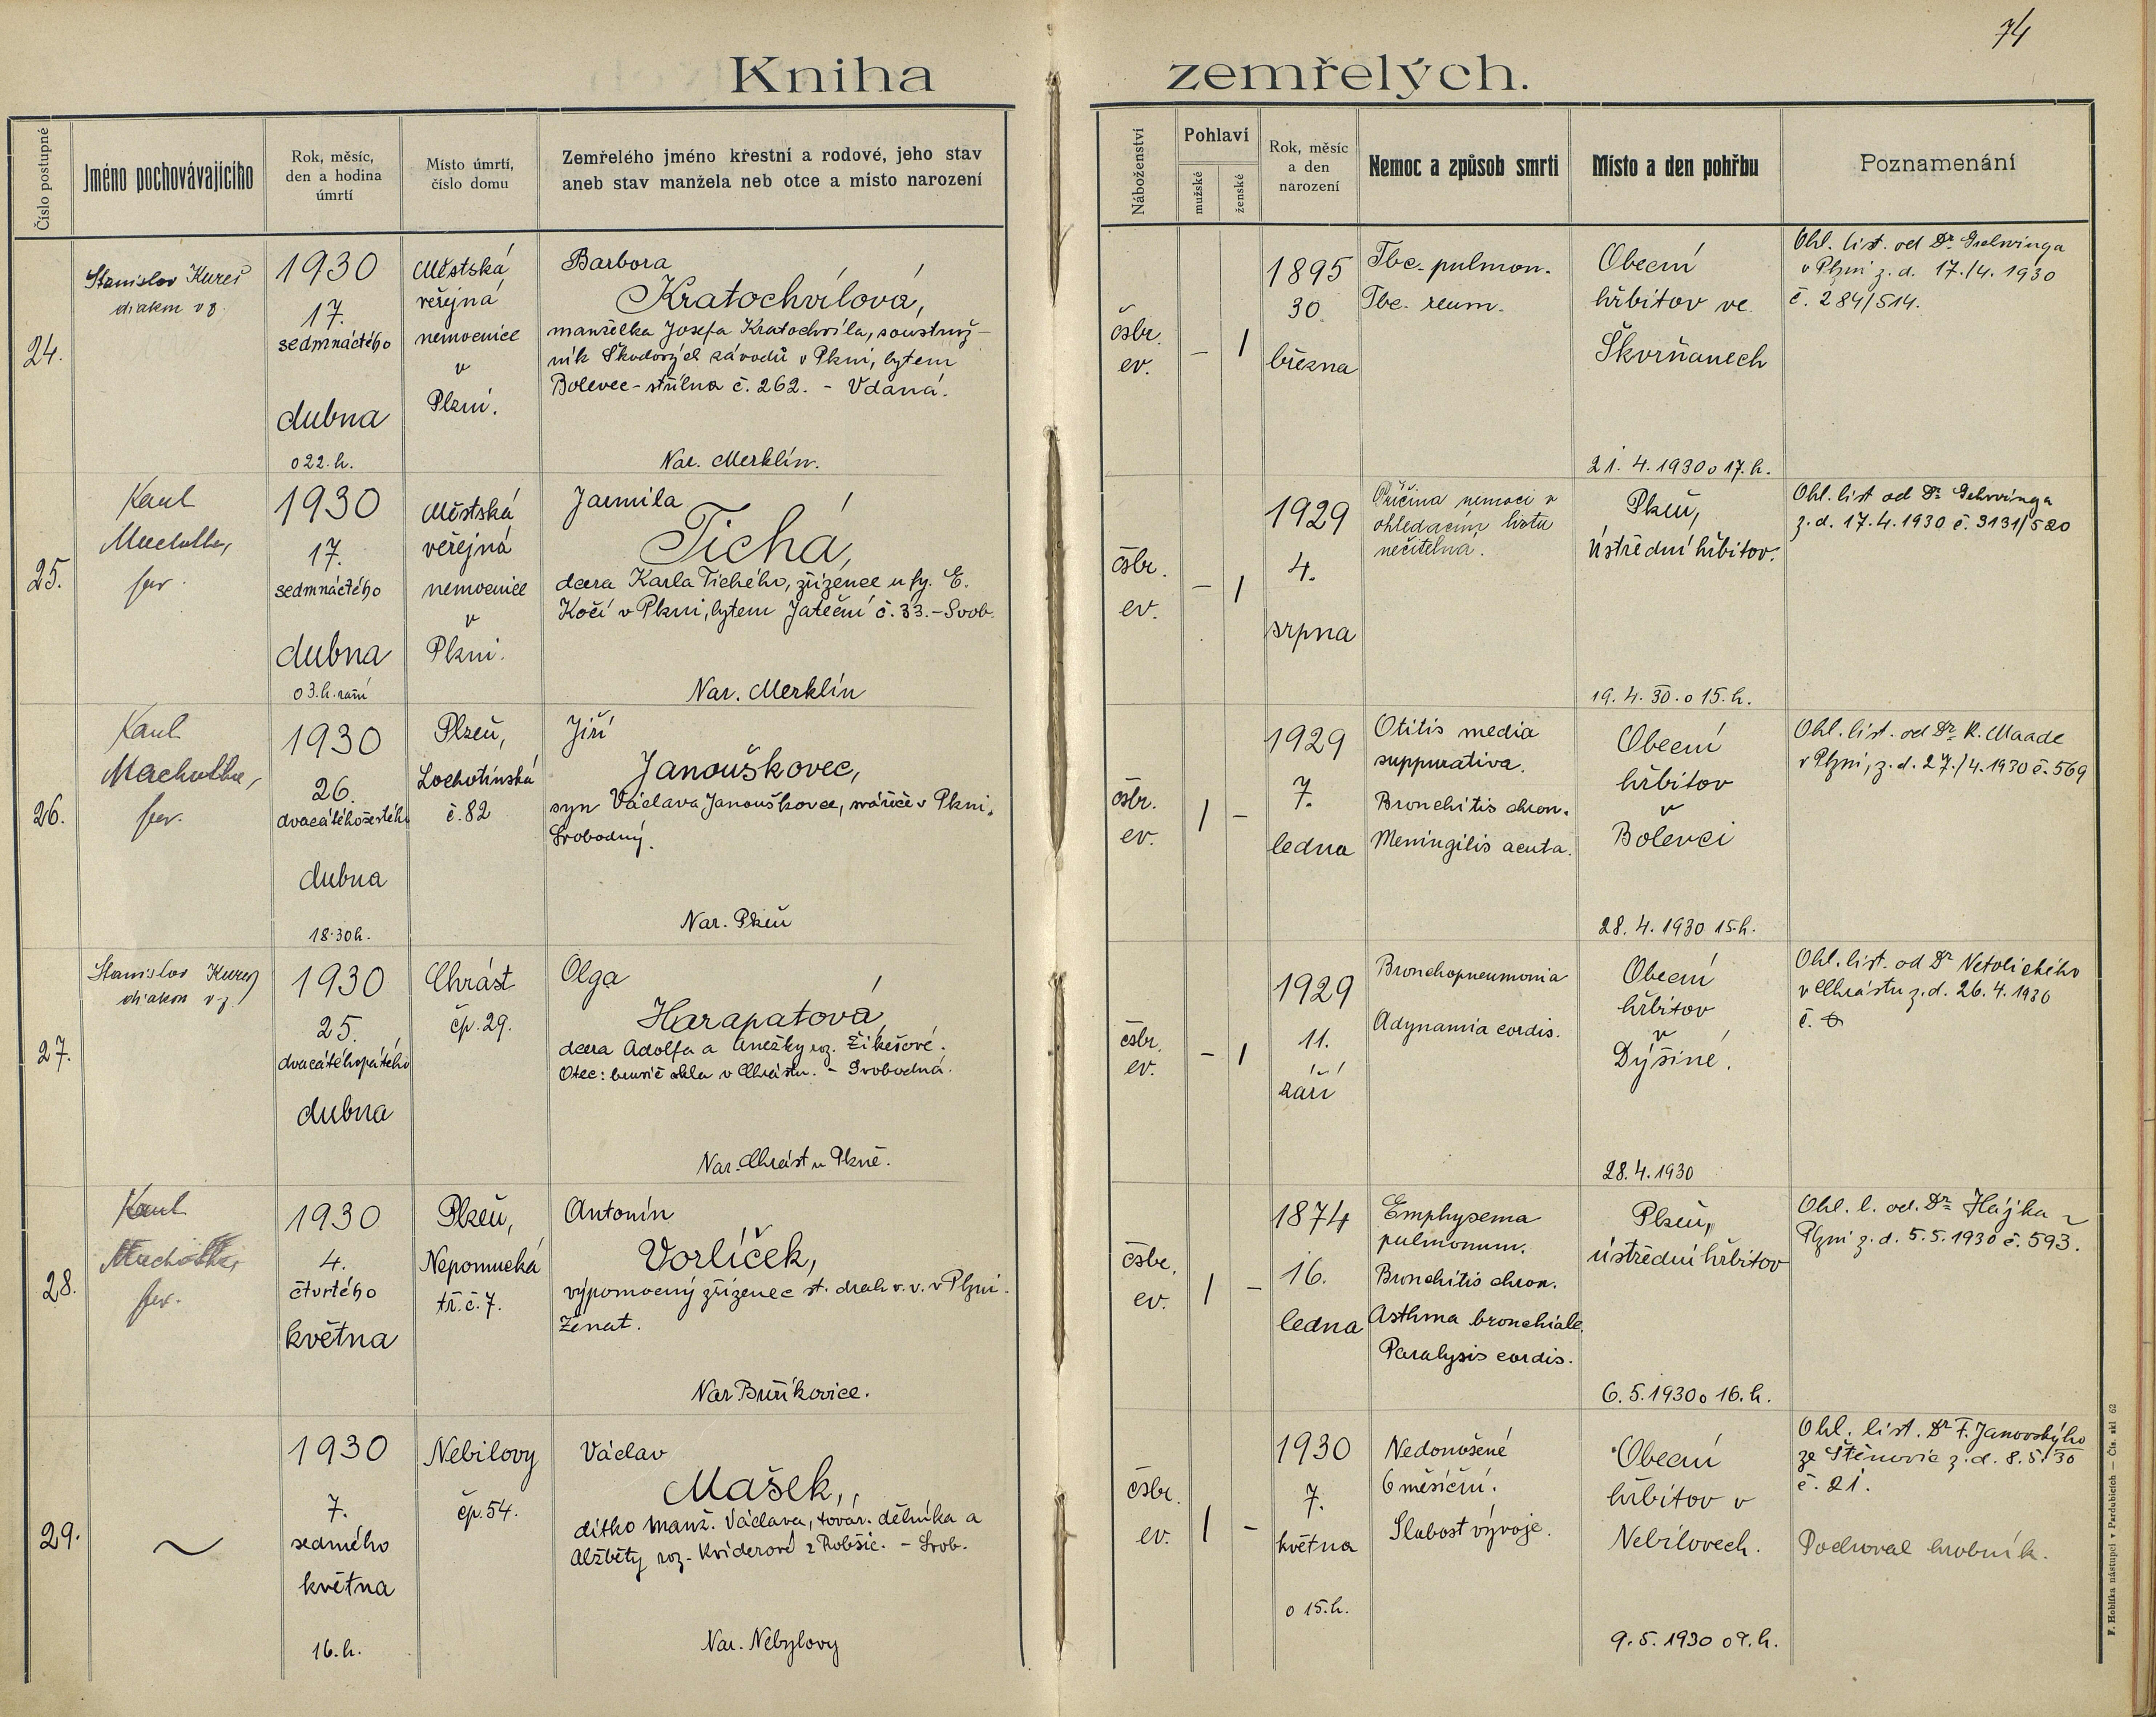 74
Kniha zemřelých.
Číslo postupné
Jméno pochovávajícího
Rok, měsíc,
den a hodina
úmrtí
Místo úmrtí,
číslo domu
Zemřelého jméno křestní a rodové, jeho stav
aneb stav manžela neb otce a místo narození
Náboženství
Pohlaví
mužské
ženské
Rok, měsíc
a den
narození
Nemoc a způsob smrti
Místo a den pohřbu
Poznamenání
24.
Stanislav Kureš
diakon v z.
1930
17.
sedmnáctého
dubna
o 22. h.
Městská
veřejná
nemocnice
v
Plzni.
Barbora
Kratochvílová,
manželka Josefa Kratochvíla, soustruž-
ník Škodových závodů v Plzni, bytem
Bolevec-střílna č. 262. - Vdaná.
Nar. Merklín.
čsbr.
ev.
–
1
1895
30.
března
Tbc. pulmon.
Tbc. reum.
Obecní
hřbitov ve
Škvrňanech
21. 4. 1930 o 17. h.
Ohl. list. od Dr.
v Plzni z. d. 17./4. 1930
č. 284/514.
25.
Machotka,
far.
1930
17.
sedmnáctého
dubna
o 3. h. ranní
Městská
veřejná
nemocnice
v
Plzni.
Jarmila
Tichá,
dcera Karla Tichého, zřízence u fy. E.
Kočí v Plzni, bytem Jateční č. 33. - Svob.
Nar. Merklín
čsbr.
ev.
–
1
1929
4.
srpna
Příčina nemoci v
ohledacím listu
nečitelná.
Plzeň,
Ústřední hřbitov.
19. 4. 30. o 15. h.
Ohl. list od Dr.
z. d. 17. 4. 1930 č. 3131/520
26.
Machotka,
far.
1930
26.
dvacátéhošestého
dubna
18·30 h.
Plzeň,
Lochotínská
č. 82
Jiří
Janouškovec,
syn Václava Janouškovce, svářeče v Plzni.
Svobodný.
Nar. Plzeň
čsbr.
ev.
1
–
1929
7.
ledna
Otitis media
suppurativa.
Bronchitis chron.
Meningilis acuta.
Obecní
hřbitov
v
Bolevci
28. 4. 1930 15. h.
Ohl. list. od Dr. R. Maade
v Plzni, z. d. 27./4. 1930 č. 569
27.
Stanislav Kureš
diakon v z.
1930
25.
dvacátéhopátého
dubna
Chrást
čp. 29.
Olga
Harapatová,
dcera Adolfa a Anežky roz. Žikešové.
Otec: brusič skla v Chrástu. - Svobodná.
Nar. Chrást u Plzně.
čsbr.
ev.
–
1
1929
11.
září
Bronchopneumonia
Adynamia cordis.
Obecní
hřbitov
v
Dýšině.
28. 4. 1930
Ohl. list. od Dr. Netolického
v Chrástu z. d. 26. 4. 1930
č.
28.
Machotka,
far.
1930
4.
čtvrtého
května
Plzeň,
Nepomucká
tř. č. 7.
Antonín
Vorlíček,
výpomocný zřízenec st. drah v. v. v Plzni.
Ženat.
Nar. Buříkovice.
čsbr.
ev.
1
–
1874
16.
ledna
Emphysema
pulmonum.
Bronchitis chron.
Asthma bronchiale.
Paralysis cordis.
Plzeň,
ústřední hřbitov
6. 5. 1930 o 16. h.
Ohl. l. od. Dr. Hájka v
Plzni z. d. 5. 5. 1930 č. 593.
29.
~
1930
7.
sedmého
května
16. h.
Nebilovy
čp. 54.
Václav
Mašek,
dítko manž. Václava, továr. dělníka a
Alžběty roz. Kviderové z Robšic. - Svob.
Nar. Nebylovy
čsbr.
ev.
1
–
1930
7.
května
o 15. h.
Nedonošené
6 měsíční.
Slabost vývoje.
Obecní
hřbitov v
Nebílovech.
9. 5. 1930 o 9. h.
Ohl. list. Dr. F. Janovského
ze Štěnovic z. d. 8. 5. 30
č. 21.
Pochoval hrobník.
F. Hoblíka nástupci v Pardubicích — Čís. skl 62